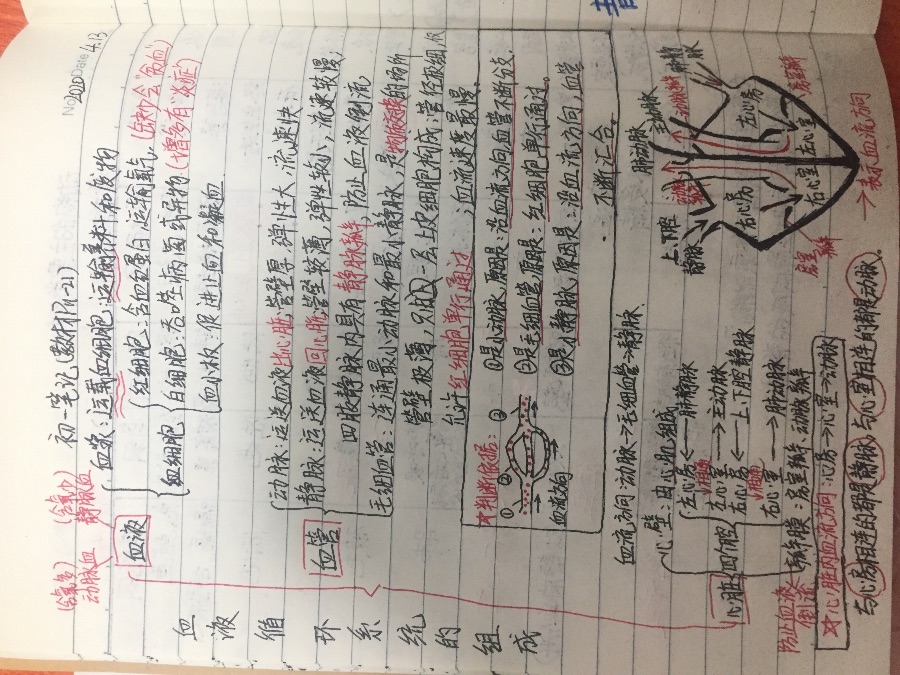 No.
Date 4.13
初一笔记(教材P19-21)
血液循环系统的组成
(含氧多)
动脉血
(含氧少)
静脉血
血液
血浆：运载血细胞，运输养料和废物
血细胞
红细胞：含血红蛋白，运输氧气，(缺少会"贫血")
白细胞：吞噬病菌或异物(增多有"炎症")
血小板：促进止血和凝血
血管
动脉：运送血液出心脏，管壁厚，弹性大，流速快；
静脉：运送血液回心脏，管壁较薄，弹性较小，流速较慢；
四肢静脉内具有静脉瓣，防止血液倒流
毛细血管：连通最小动脉和最小静脉，是物质交换的场所
管壁极薄，只由一层上皮细胞构成，管径极细，仅
允许红细胞单行通过，血流速度最慢
判断依据：
① ② ③
血流方向
①是小动脉，原因是：沿血流方向血管不断分支.
②是毛细血管，原因是：红细胞单行通过.
③是小静脉，原因是：沿血流方向，血管
不断汇合.
血流方向：动脉→毛细血管→静脉
心脏
心壁：由心肌组成
四个腔
左心房←肺静脉
左心室→主动脉
右心房←上、下腔静脉
右心室→肺动脉
瓣膜：房室瓣、动脉瓣
防止血液倒流
心脏内血流方向：心房→心室→动脉
与心房相连的都是静脉，与心室相连的都是动脉.
上、下腔静脉
肺动脉
主动脉
肺静脉
动脉瓣
左心房
右心房
左心室
右心室
房室瓣
房室瓣
→表示血流方向